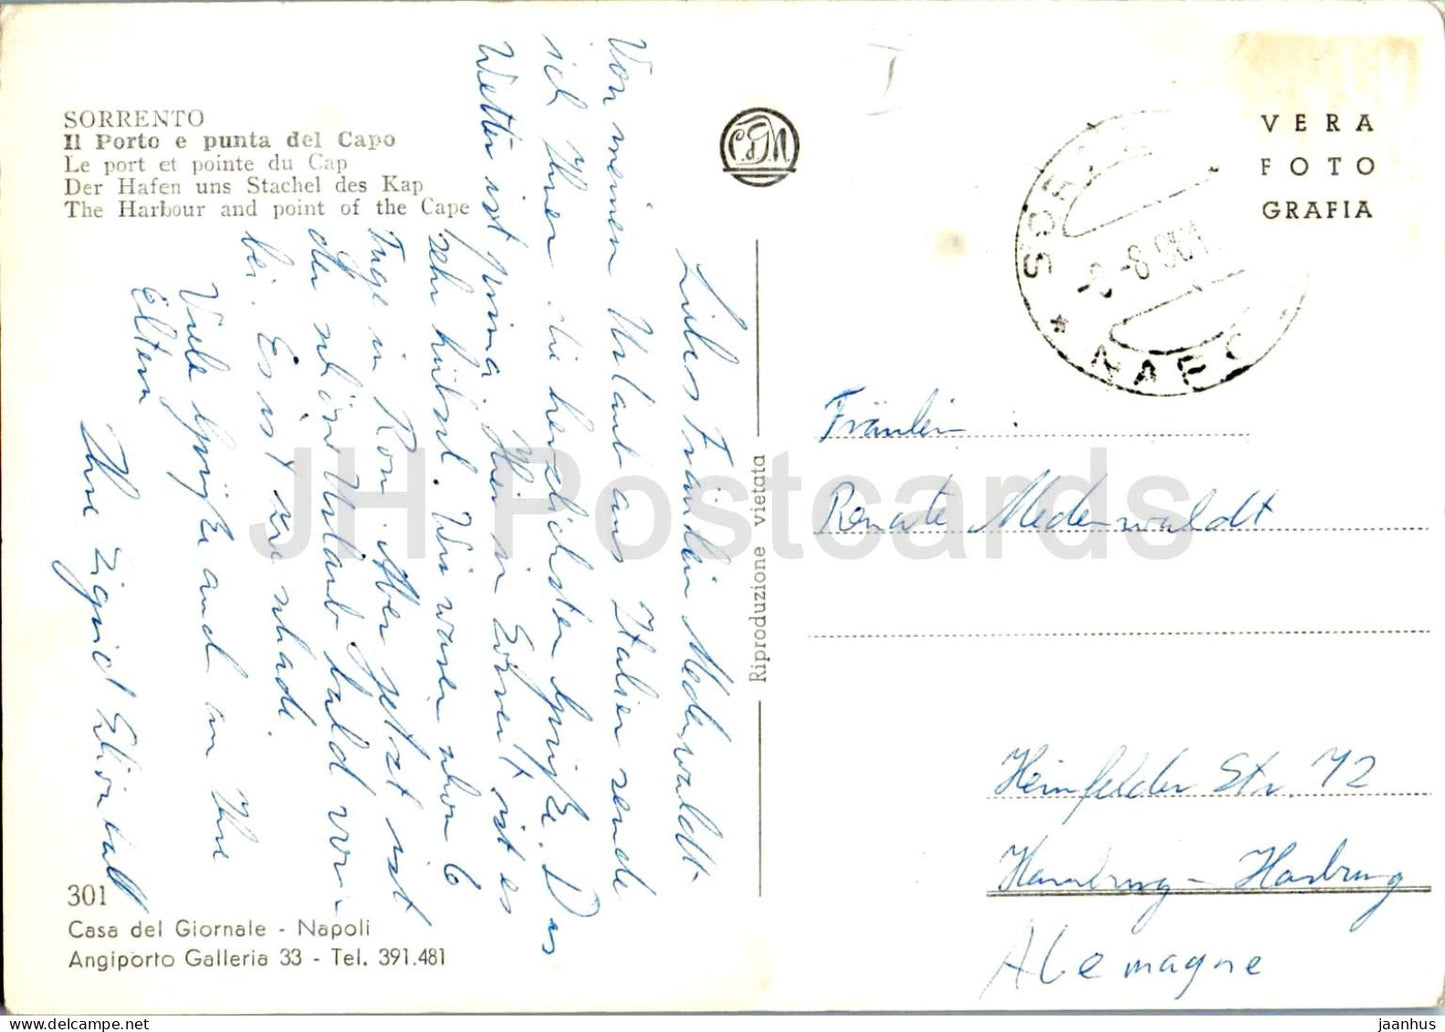 SORRENTO
Il Porto e punta del Capo
Le port et pointe du Cap
Der Hafen uns Stachel des Kap
The Harbour and point of the Cape
Liebes Fräulein Medenwaldt
Von meinem Urlaub aus Italien sende
ich Ihnen die herzlichsten Grüße. Das
Wetter ist prima. Hier in Sorrent ist es
sehr hübsch. Wir waren schon 6
Tage in Rom. Aber jetzt ist
der schöne Urlaub bald vor-
bei. Es ist sehr schade.
Viele Grüße auch an Ihre
Eltern
Ihre
301
Casa del Giornale - Napoli
Angiporto Galleria 33 - Tel. 391.481
Riproduzione vietata
C.D.M
VERA
FOTO
GRAFIA
Fräulein
Renate Medenwaldt
Heinfelder Str. 72
Hamburg - Harburg
Alemagne
JH Postcards
jaanhus